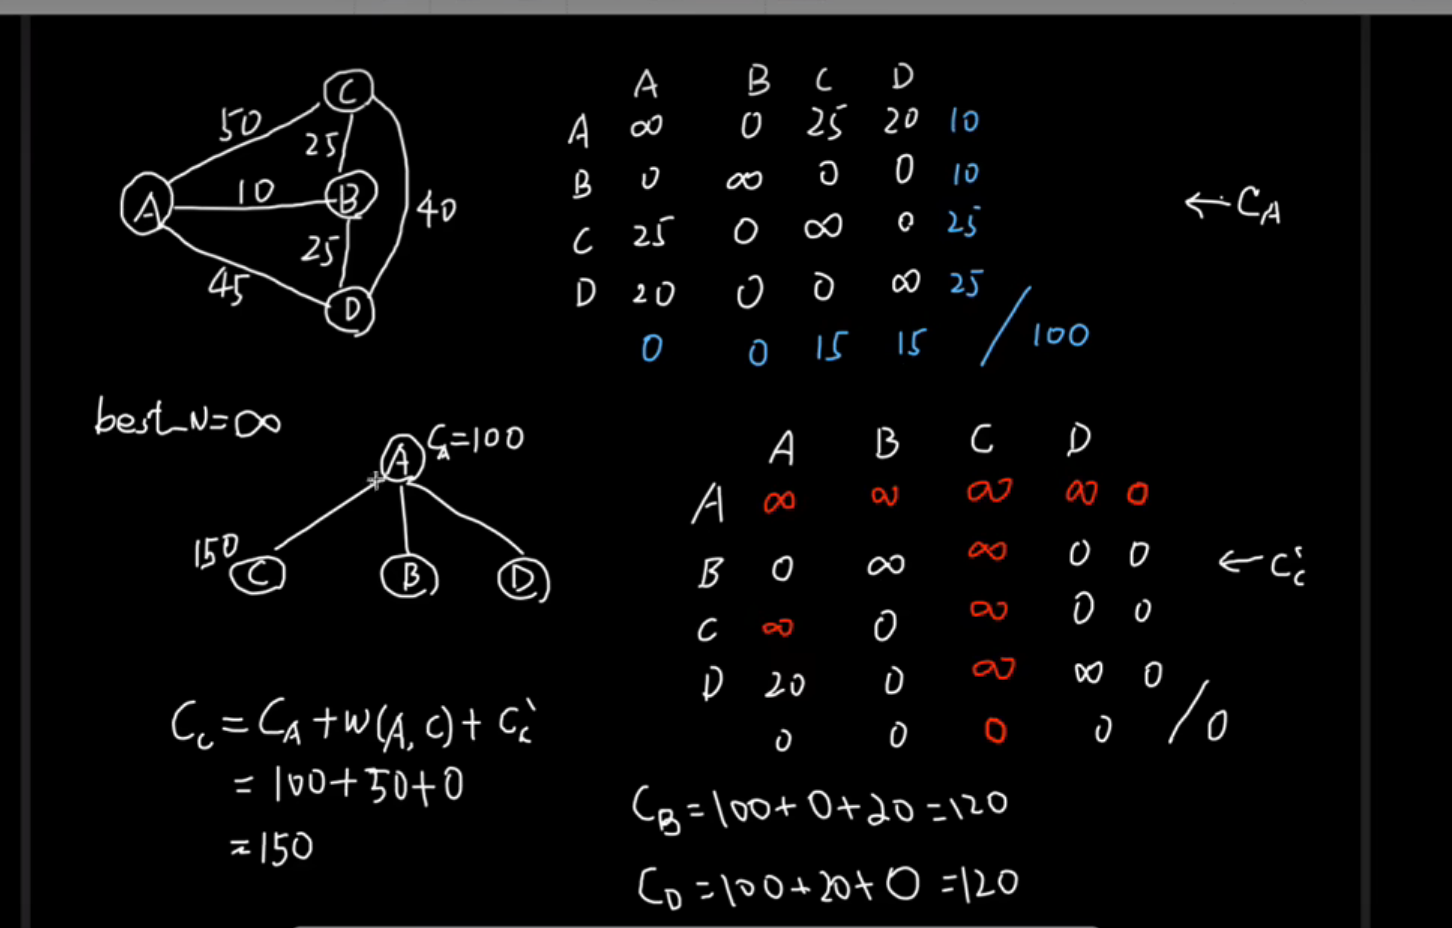 C
50
25
A
10
B
40
25
45
D
A B C D
A ∞ 0 25 20 10
B 0 ∞ 0 0 10
C 25 0 ∞ 0 25
D 20 0 0 ∞ 25
0 0 15 15 / 100
← C_A
best_N=∞
A C_A=100
150 C B D
A B C D
A ∞ ∞ ∞ ∞ 0
B 0 ∞ ∞ 0 0
C ∞ 0 ∞ 0 0
D 20 0 ∞ ∞ 0
0 0 0 0 / 0
← C'_c
C_c = C_A + w(A, C) + C'_c
= 100+50+0
=150
C_B=100+0+20=120
C_D=100+20+0=120